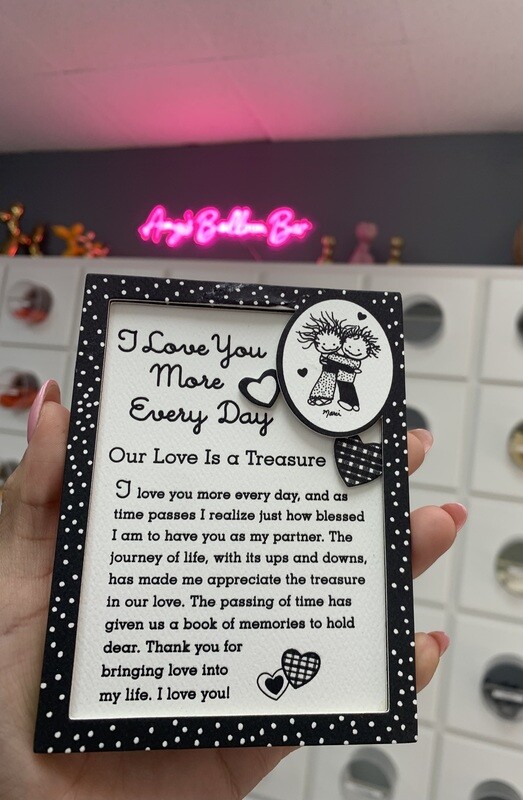 Amy's Balloon Bar
I Love You
More
Every Day
Marci
Our Love Is a Treasure
I love you more every day, and as
time passes I realize just how blessed
I am to have you as my partner. The
journey of life, with its ups and downs,
has made me appreciate the treasure
in our love. The passing of time has
given us a book of memories to hold
dear. Thank you for
bringing love into
my life. I love you!